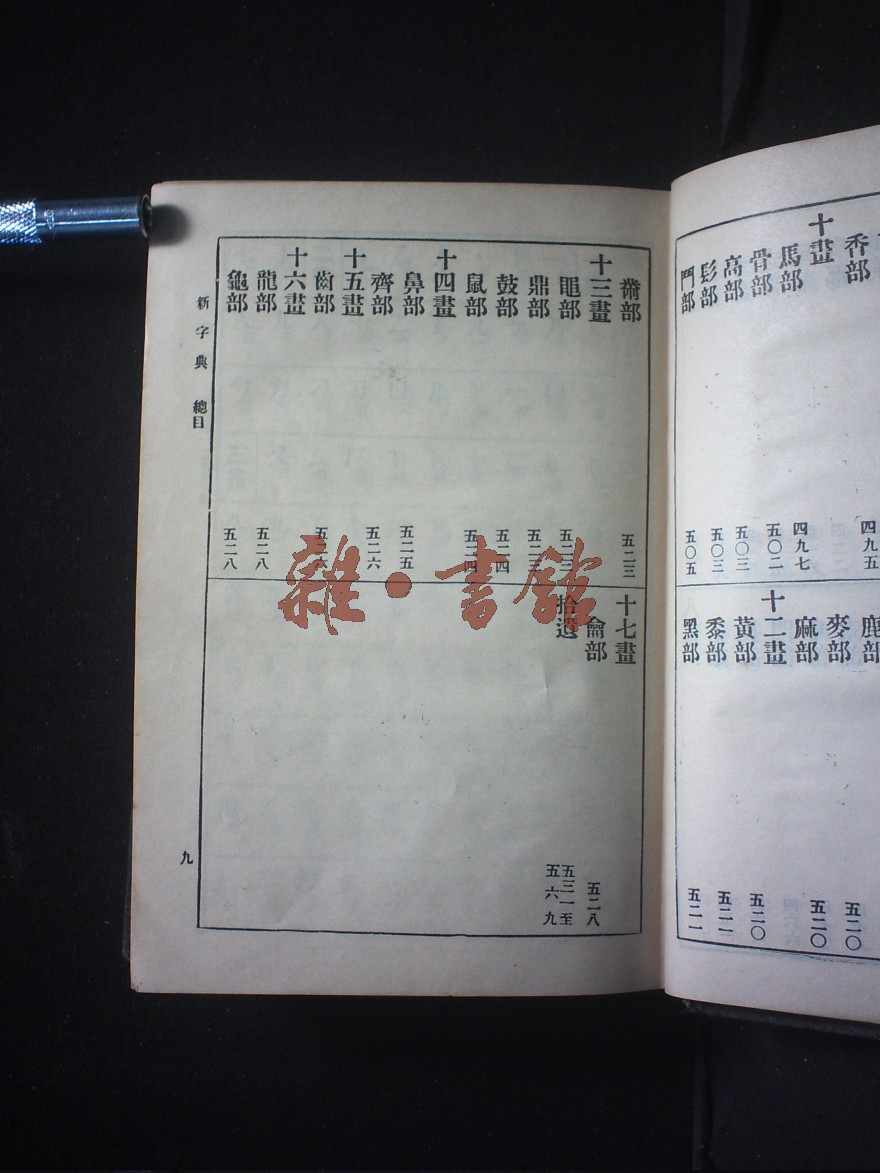 香部 四九五
十畫
馬部 四九七
骨部 五〇二
高部 五〇三
髟部 五〇三
鬥部 五〇五
鹿部
麥部 五二〇
麻部 五二〇
十二畫
黃部 五二〇
黍部 五二一
黑部 五二一
黹部 五二三
十三畫
黽部 五二三
鼎部 五二三
鼓部 五二四
鼠部 五二四
十四畫
鼻部 五二五
齊部 五二六
十五畫
齒部 五二六
十六畫
龍部 五二八
龜部 五二八
十七畫
龠部 五二八
拾遺 五三一至五六九
新字典 總目
九
雜·書館